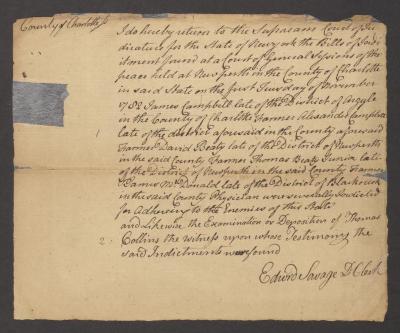 County of Charlotte ss
I do hereby return to the Supream Court of Ju
dicature for the State of New york the Bills of Indi
ctment found at a Court of General Sessions of the
peace held at New perth in the County of Charlotte
in said State on the first Tuesday of November
1782 James Campbell late of the District of Argyle
in the County of Charlotte Farmer Alexander Campbell
late of the district aforesaid in the County aforesaid
Farmer David Beaty late of the District of Newperth
in the said County Farmer Thomas Beaty Junior late
of the District of Newperth in the said County Farmer
James McDonald late of the District of Blackcreek
in the said County Physician were severally Indicted
for Adhereing to the Enemies of this State
and Likewise the Examination or Deposition of Thomas
Collins the witness upon whose Testimony the
said Indictments were found
Edwrd Savage D Clerk